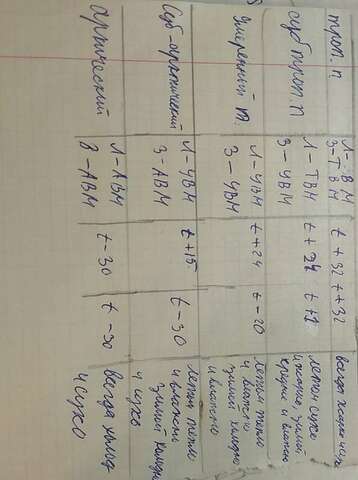 троп. п
Л-ТВМ
З-ТВМ
t+32 t+32
субтроп. п
Л-ТВМ
З-УВМ
t+24 t+2
летом сухо
и жарко, зимой
умеренный п.
Л-УВМ
З-УВМ
t+24 t-20
летом тепло
и влажно
зимой холодно
и влажно
Суб-арктический
Л-УВМ
З-АВМ
t+15 t-30
летом тепло
и влажно
зимой холодно
и сухо
арктический
Л-АВМ
З-АВМ
t-30 t-30
всегда холод
и сухо